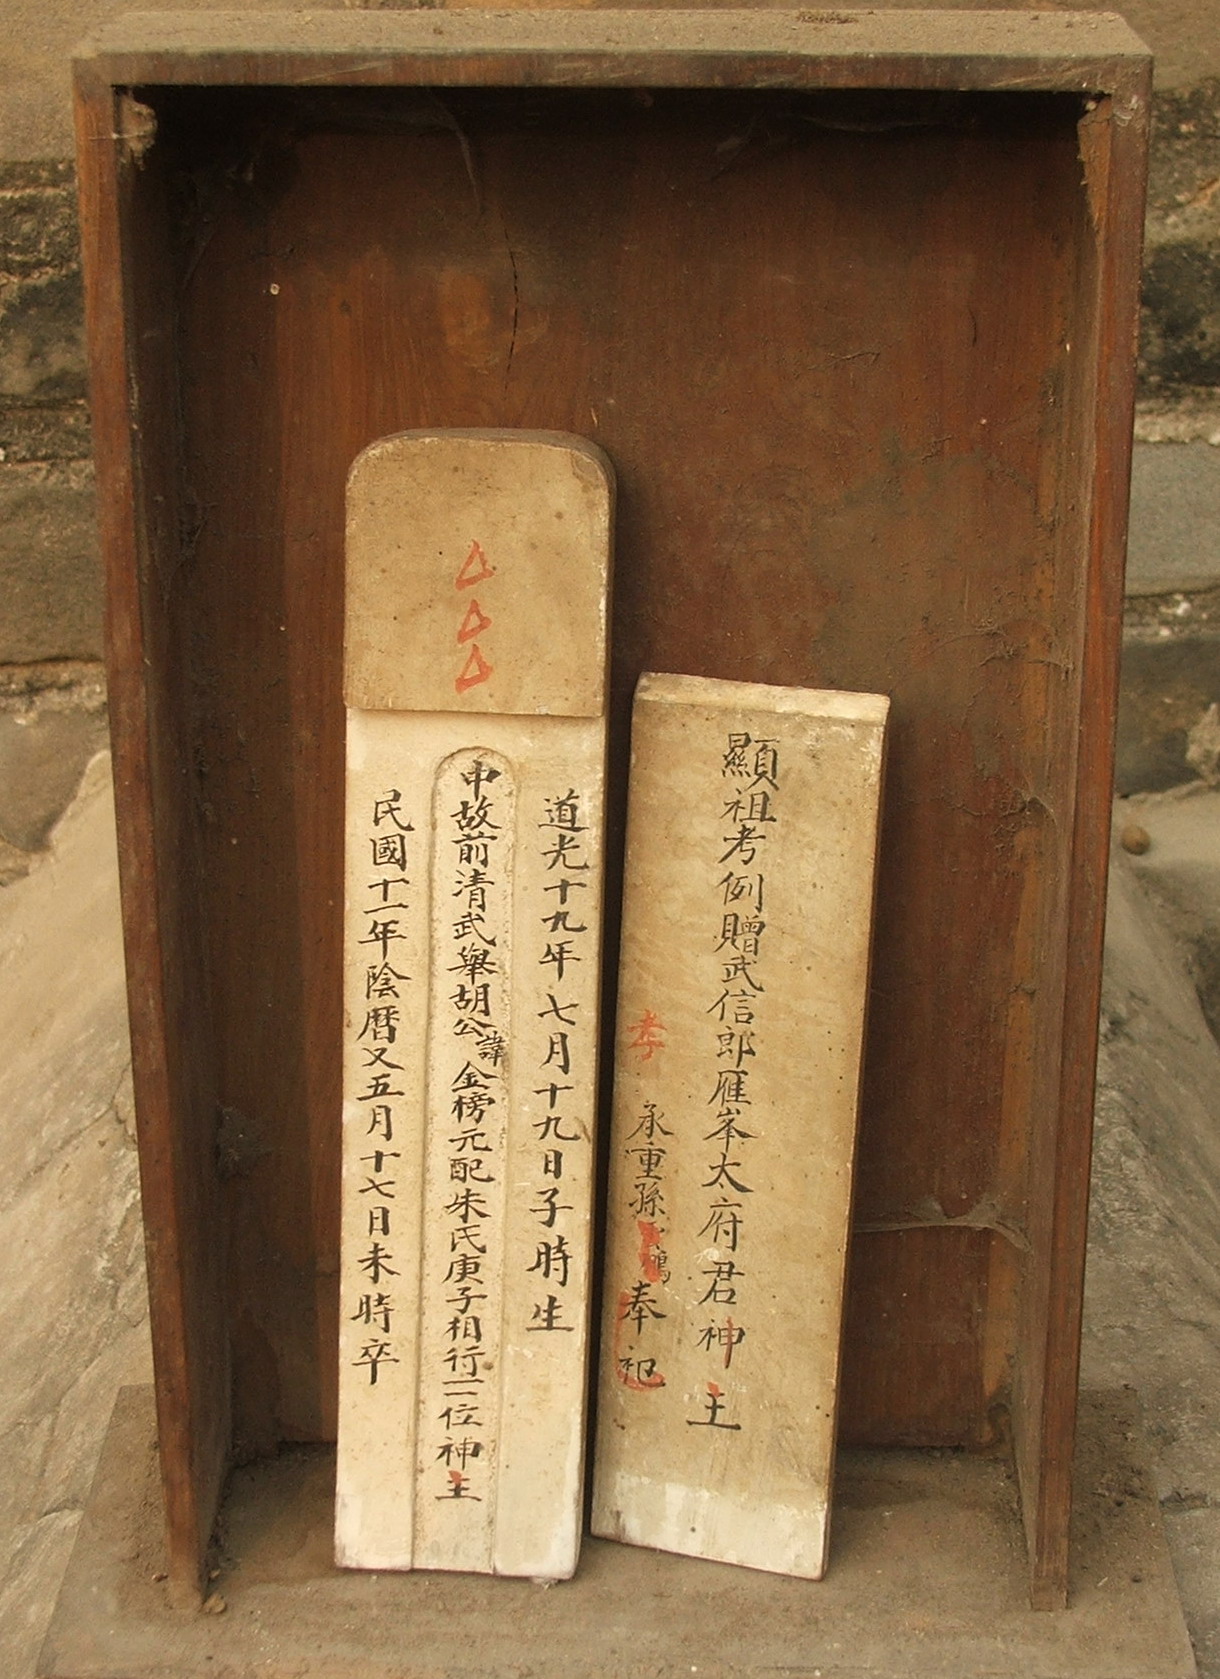 顯祖考例贈武信郎雁峯太府君神主
孝
承重孫鶴奉祀
道光十九年七月十九日子時生
中故前清武舉胡公諱金榜元配朱氏庚子相行二位神主
民國十一年陰曆又五月十七日未時卒